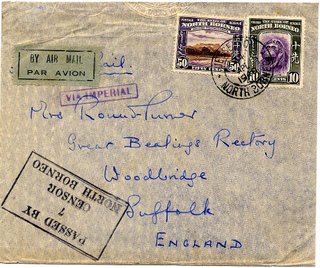 BY AIR MAIL
PAR AVION
Mail.
VIA IMPERIAL
NORTH BORNEO
50 FIFTY CENTS 50
NORTH BORNEO
10 10
NORTH BOR
Mrs Round-Turner
Great Bealings Rectory
Woodbridge
Suffolk
ENGLAND
PASSED BY
CENSOR
7
NORTH BORNEO